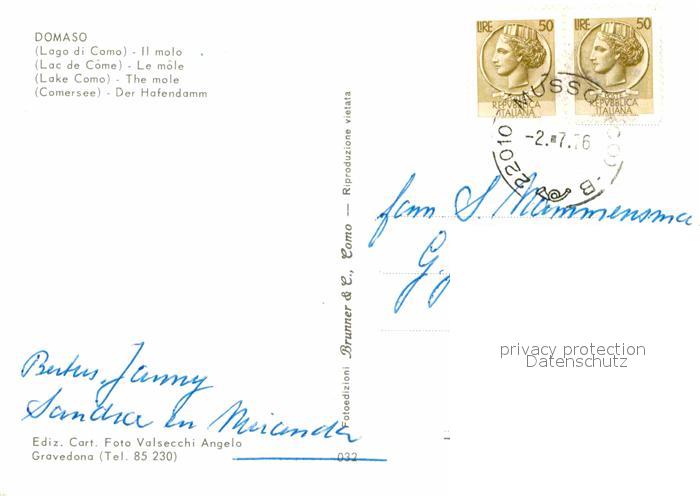 DOMASO
(Lago di Como) - Il molo
(Lac de Côme) - Le môle
(Lake Como) - The mole
(Comersee) - Der Hafendamm
LIRE 50
REPVBBLICA
ITALIANA
LIRE 50
POSTE
REPVBBLICA
ITALIANA
22010 MUSSO (CO) - B
-2.7.76
Fotoedizioni Brunner & C., Como — Riproduzione vietata
fam S. Mammensma
G.
privacy protection
Datenschutz
Bertus, Janny
Sandra en Miranda
Ediz. Cart. Foto Valsecchi Angelo
Gravedona (Tel. 85 230)
032